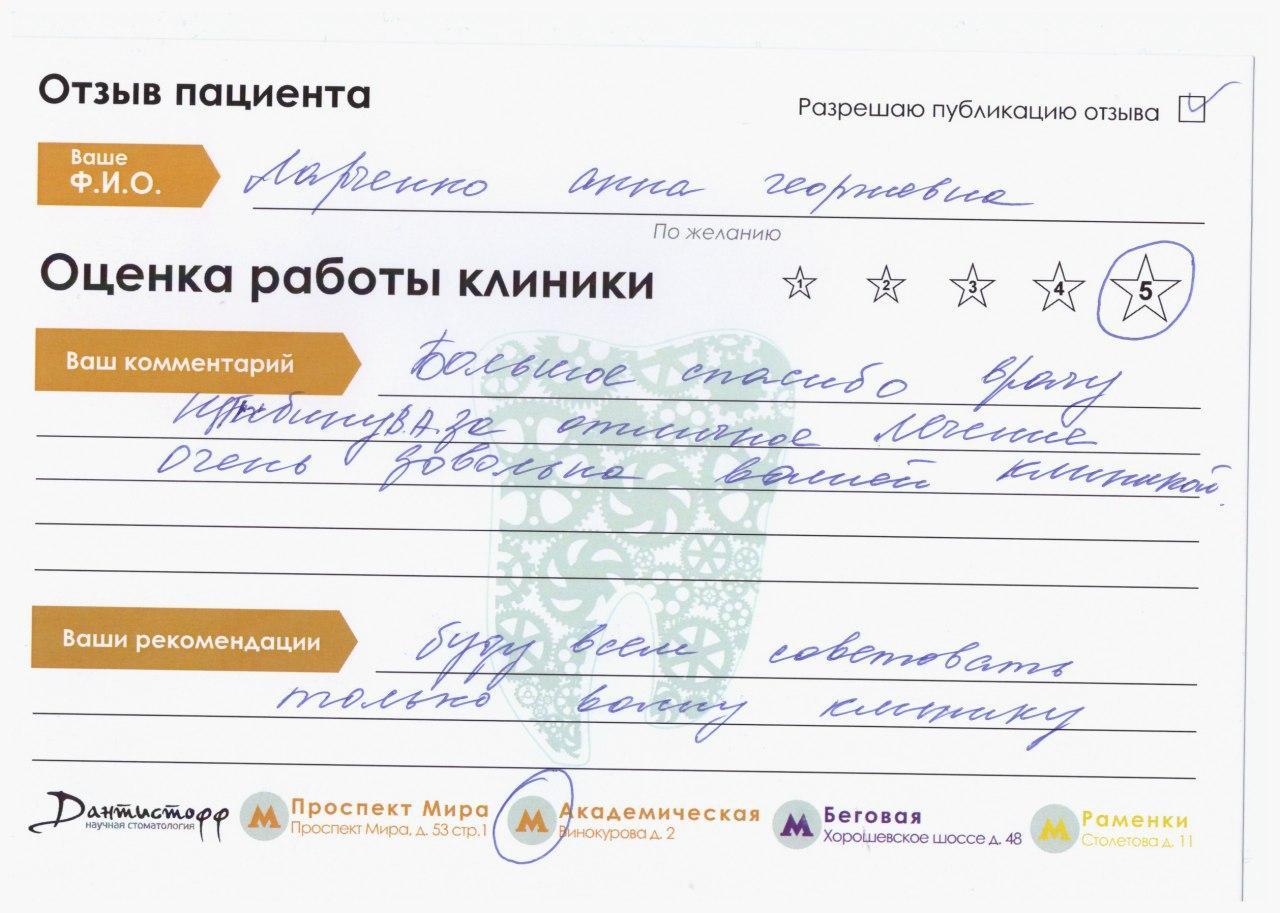 Отзыв пациента
Разрешаю публикацию отзыва
Ваше
Ф.И.О.
Ларченко анна георгиевна
По желанию
Оценка работы клиники
1 2 3 4 5
Ваш комментарий
Большое спасибо врачу
В.А. за отличное лечение
Очень довольна вашей клиникой.
Ваши рекомендации
буду всем советовать
только вашу клинику
Дантистофф
научная стоматология
М Проспект Мира
Проспект Мира, д. 53 стр.1
М Академическая
Винокурова д. 2
М Беговая
Хорошевское шоссе д. 48
М Раменки
Столетова д. 11